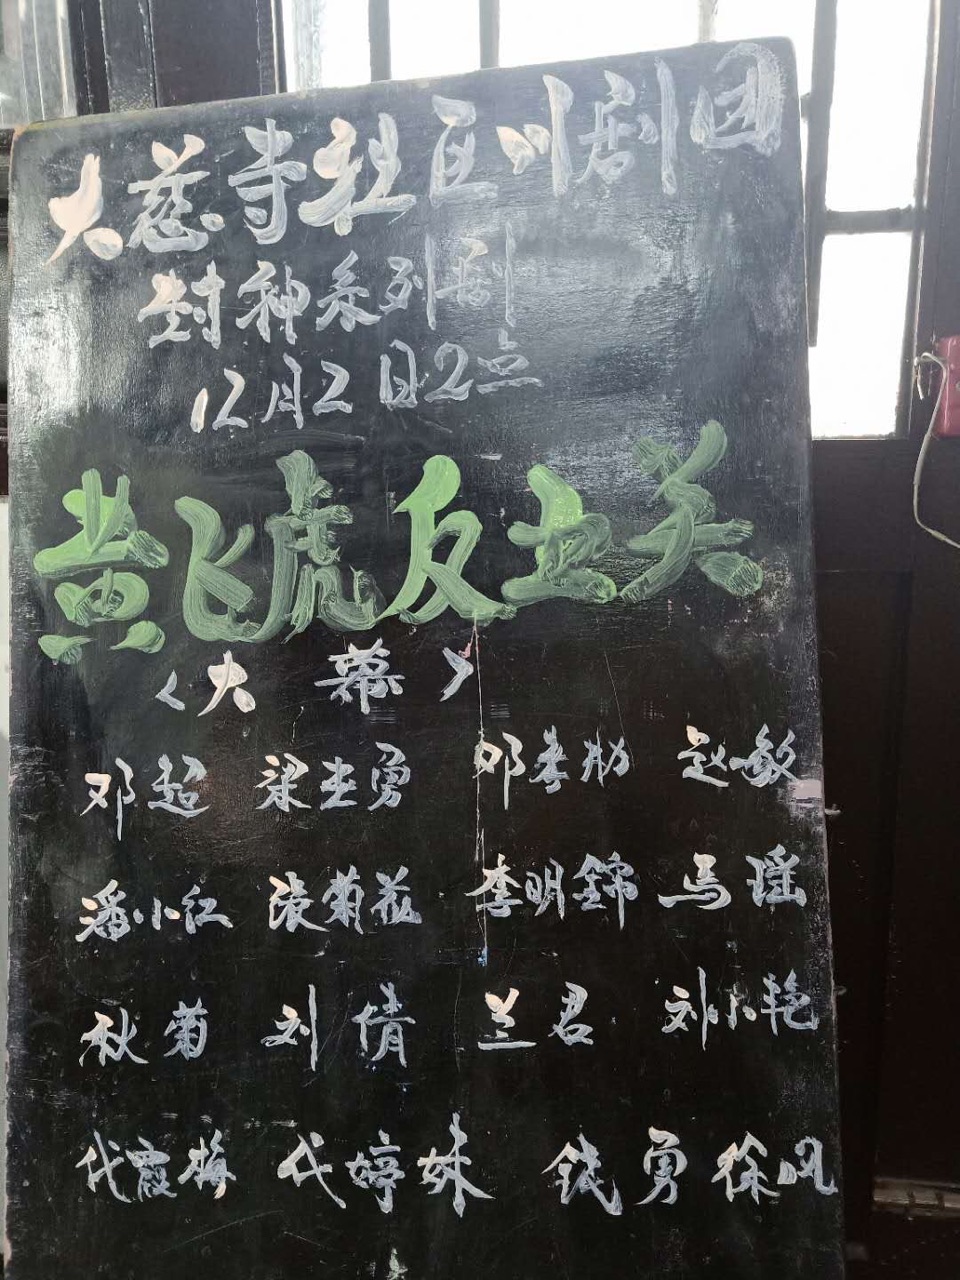 大慈寺社区川剧团
封神系列剧
12月2日2点
黄飞虎反五关
<大 幕>
邓超 梁志勇 邓孝肋 赵敏
潘小红 张菊花 李明錦 马瑶
秋菊 刘倩 兰君 刘小艳
代霞梅 代婷妹 钱勇 徐凤